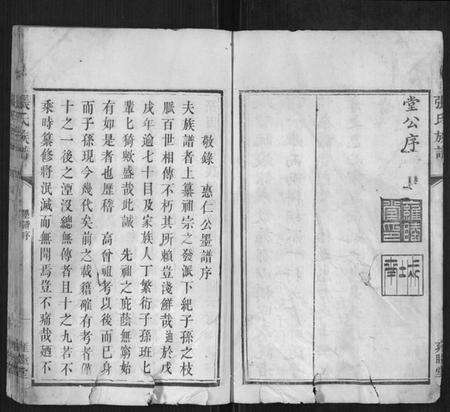 堂公序
張氏族譜
敬錄　惠仁公墨譜序
夫族譜者上纂祖宗之發派下紀子孫之枝
脈百世相傳不朽其所賴豈淺鮮哉適於戊
戌年逾七十目及家族人丁繁衍子孫班七
輩七猗歟盛哉此誠　先祖之庇蔭無窮始
有如是者也歷稽　高曾祖考以後而已身
而子孫現今幾代矣前之載籍確有考者僅
十之一後之湮沒總無傳者且十之九若不
乘時纂修將泯滅而無聞焉豈不痛哉迺不
張氏族譜